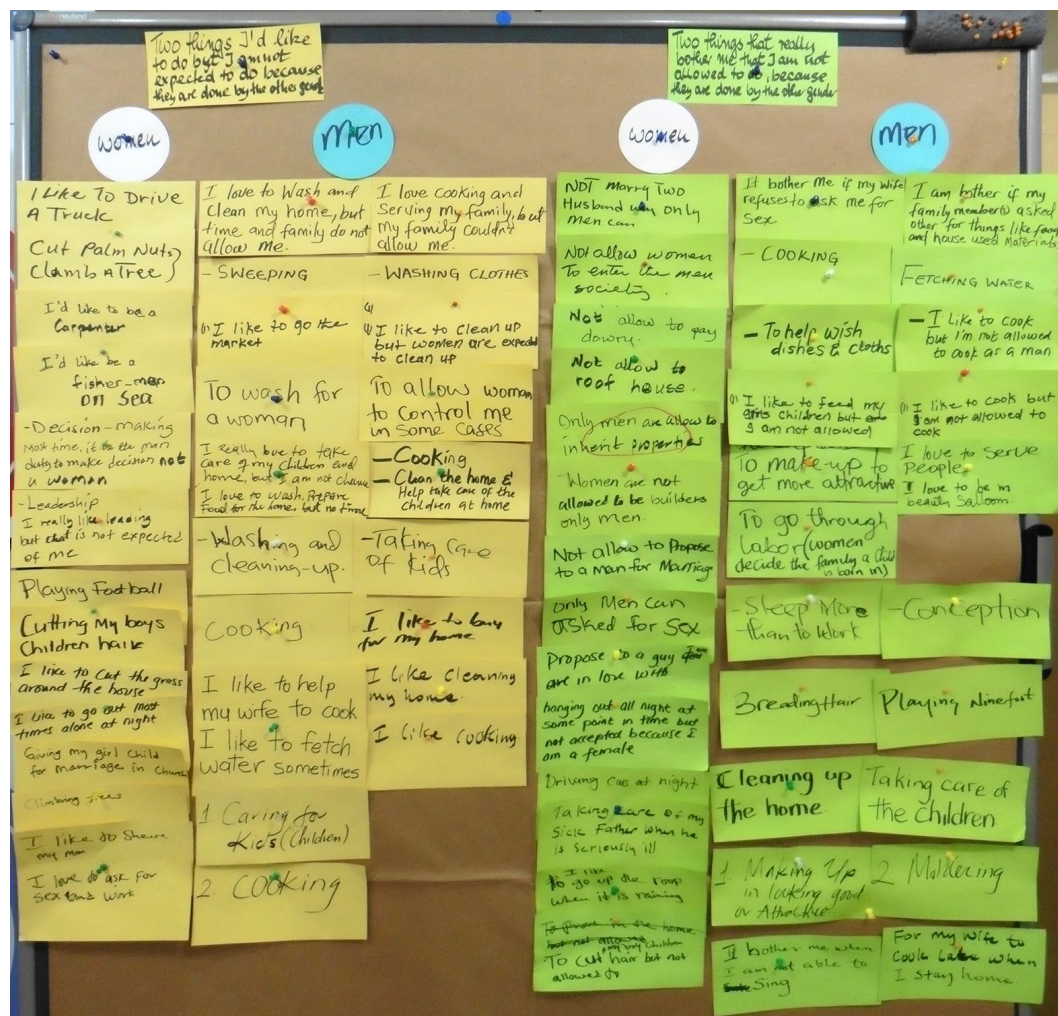 Two things I'd like
to do but I am not
expected to do because
they are done by the other gender
women
Men
I Like To Drive
A Truck
Cut Palm Nuts
Clamb A Tree
I'd like to be a
Carpenter
I'd like be a
fisher-man
on sea
-Decision-making
Most time, it is the man
duty to make decision not
a woman
-Leadership
I really like leading
but that is not expected
of me
Playing Football
Cutting My boys
Children hair
I like to cut the grass
around the house
I like to go out most
times alone at night
Giving my girl child
for marriage in church
Climbing trees
I like to
my man
I love to ask for
sex and work
I love to Wash and
Clean my home, but
time and family do not
allow me.
- SWEEPING
(1) I like to go the
market
To wash for
a woman
I really love to take
care of my children and
home, but I am not chance
I love to wash, Prepare
Food for the home, but no time
-Washing and
cleaning-up.
Cooking
I like to help
my wife to cook
I like to fetch
water sometimes
1. Caring for
Kids (Children)
2. Cooking
I love cooking and
Serving my family, but
my family couldn't
allow me.
- WASHING CLOTHES
I like to clean up
but women are expected
to clean up
To allow woman
to control me
in some cases
- Cooking
- Clean the home &
Help take care of the
Children at home
-Taking care
of Kids
I like to buy
for my home
I like Cleaning
my home.
I like cooking
Two things that really
bother me that I am not
allowed to do, because
they are done by the other gender
women
Men
NOT Marry Two
Husband why only
Men can
Not allow women
To enter the men
society.
Not allow to pay
dowry.
Not allow to
roof house.
Only men are allow to
inherit properties
-Women are not
allowed to be builders
only men.
Not allow to Propose
to a man for Marriage
only Men can
asked for sex
Propose to a guy I am
are in love with
hanging out all night at
some point in time but
not accepted because I
am a female
Driving car at night
Taking care of my
Sick Father when he
is seriously ill
I like
To go up the roof
when it is raining
my boy children
To cut hair but not
allowed to
It bother Me if my wife
refuses to ask me for
Sex.
- COOKING
- To help wish
dishes & cloths
I like to feed my
children but
I am not allowed
To make-up to
get more attractive
To go through
Labor (women
decide the family a child
is born in)
-Sleep More
than to Work
Breading Hair
Cleaning up
the home
1. Making Up
in looking good
or Attractive
It bother me when
I am not able to
Sing
I am bother if my
family member(s) asked
other for things like food
and house used materials
FETCHING WATER
- I like to cook
but I'm not allowed
to cook as a man
I like to cook but
I am not allowed to
cook
I love to serve
People.
I love to be in
beauty Salloom.
-Conception
Playing Ninefoot
Taking care of
the children
2 Moldering
For my wife to
Cook late when
I stay home